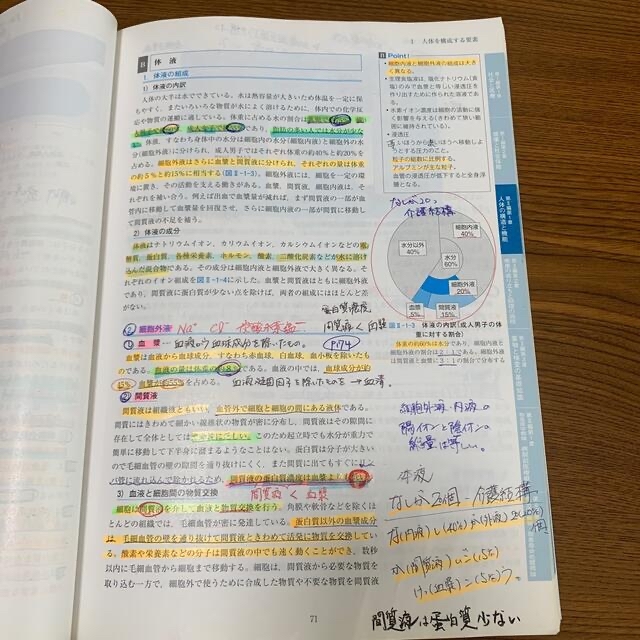 I 人体を構成する要素
B 体液
1. 体液の組成
1) 体液の内訳
人体の大半は水でできている。水は熱容量が大きいため体温を一定に保
ちやすく、またいろいろな物質が水によく溶けるために、体内での化学反
応や物質の運搬に適している。体重に占める水の割合は
体液、すなわち身体中の水分は細胞内の水分(細胞内液)と細胞外の水
分(細胞外液)に分けられ、成人男子ではそれぞれ体重の約40%と約20%を
占める。細胞外液はさらに血漿と間質液に分けられ、それぞれの量は体重
の約5%と約15%に相当する(図Ⅱ-1-3)。細胞外液には、細胞を一定の環
境に置き、その活動を支える働きがある。血漿、間質液、細胞内液は、そ
れぞれを補い合う。例えば出血で血漿量が減れば、まず間質液の一部が血
管内に移動して血漿量を回復させ、さらに細胞内液の一部が間質に移動し
て間質液の不足を補う。
2) 体液の成分
体液はナトリウムイオン、カリウムイオン、カルシウムイオンなどの電
解質、蛋白質、各種栄養素、ホルモン、酸素、二酸化炭素などが水に溶け
込んだ混合物である。その成分は細胞内液と細胞外液で大きく異なる。そ
れぞれのイオン組成を図Ⅱ-1-4に示した。血漿と間質液はともに細胞外液で
あり、間質液に蛋白質が少ない点を除けば、両者の組成にはほとんど差が
ない。
② 細胞外液 Na⁺ Cl⁻
蛋白質濃度
間質液く血漿
① 血漿 ― 血液のうち血球成分を除いたもの。 P174
血漿は血液から血球成分、すなわち赤血球、白血球、血小板を除いたもの
である。血液の量は体重の約8%である。血液の中では、血球成分が約
45%、血漿が約55%を占める。 血液凝固因子を除いたものを→血清。
② 間質液
間質液は組織液ともいい、血管外で細胞と細胞の間にある液体である。
間質にはきわめて細かい線維状の物質が密に分布し、間質液はその隙間に
存在して全体としては
簡単に移動して下半身に溜まるようなことはない。蛋白質は分子が大きい
のでも毛細血管の壁の隙間を通り抜けにくく、また間質に出てもすぐにリン
パ管に流れ込んで除かれるため、間質液の蛋白質濃度は血漿より
間質液く血漿
3) 血液と細胞間の物質交換
細胞は間質液を介して血液と物質交換を行う。角膜や軟骨などを除くほ
とんどの組織では、毛細血管が密に発達している。蛋白質以外の血漿成分
は、毛細血管の壁を通り抜けて間質液ときわめて活発に物質を交換してい
る。酸素や栄養素などの分子は間質液の中でも速く動くことができ、数秒
以内に毛細血管から細胞まで移動する。細胞は、間質液から必要な物質を
取り込む一方で、細胞外で使うために合成した物質や不要な物質を間質液
71
Point!
・細胞内液と細胞外液の組成は大き
く異なる。
・生理食塩液は、塩化ナトリウム(食
塩)のみで血漿と等しい浸透圧を
作り出すために作られた溶液であ
る。
・水素イオン濃度は細胞の活動に強
く影響を与える(きわめて狭い範
囲に維持されている)。
・浸透圧
とする圧力のこと。
粒子の総数に比例する。
アルブミンが主な粒子。
血管の浸透圧が低下すると全身浮
腫となる。
なしが2個。
介護結構
細胞内液
40%
水分以外
40%
水分
60%
細胞外液
20%
血漿
5%
間質液
15%
図Ⅱ-1-3 体液の内訳(成人男子の体
重に対する割合)
体重の約60%は水分であり、細胞内液と
細胞外液の比はおよそ2:1である。細
胞外液は間質液と血漿に3:1の割合で分布する
細胞外液、内液。
陽イオンと陰イオンの
総量は等しい。
体液
なしが2個 介護結構
な(内液)し(40%) が(外液)2(20%)個
か(間質液)いご(15%)
け(血漿)っこ(5%)う。
間質液は蛋白質少ない
人体の構造と機能